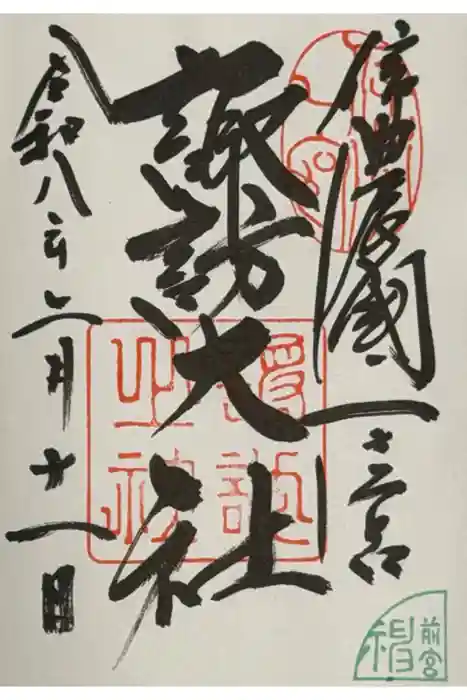 信濃國一之宮
諏訪大社
令和八年二月十一日
諏訪
之社
前宮